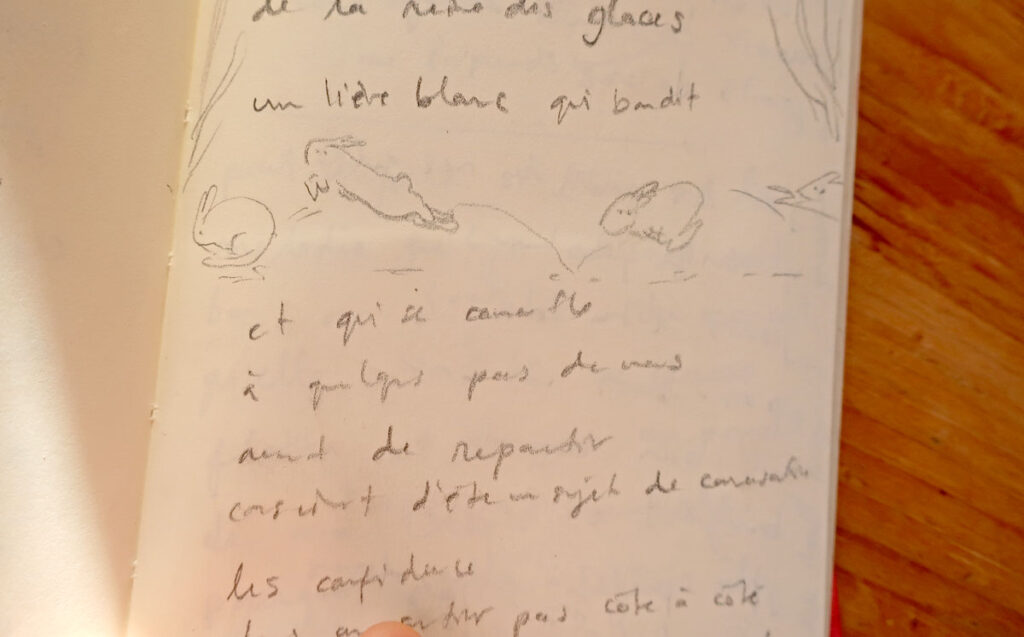 de la reine des glaces
un lièvre blanc qui bondit
et qui se
à quelques pas de nous
avant de repartir
conscient d'être un sujet de conversation
les confidence
pas côte à côte